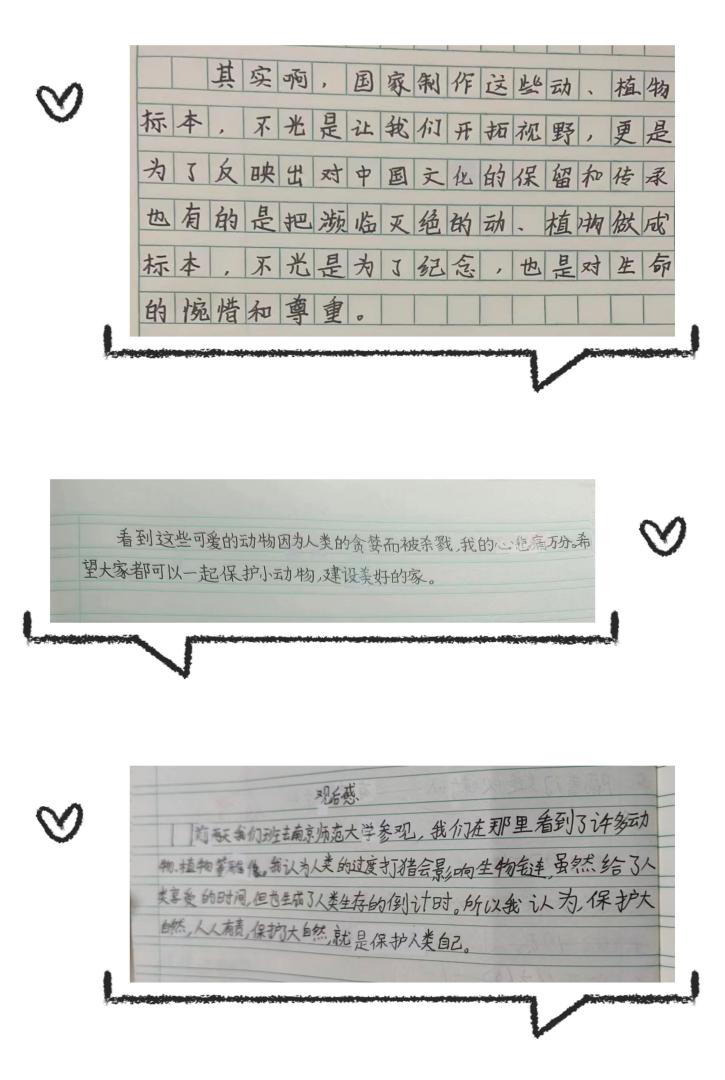 其实啊，国家制作这些动、植物
标本，不光是让我们开拓视野，更是
为了反映出对中国文化的保留和传承
也有的是把濒临灭绝的动、植物做成
标本，不光是为了纪念，也是对生命
的惋惜和尊重。
看到这些可爱的动物因为人类的贪婪而被杀戮，我的心悲痛万分。希
望大家都可以一起保护小动物，建设美好的家。
观后感
前两天我们班去南京师范大学参观，我们在那里看到了许多动
物、植物等。我认为人类的过度打猎会影响生物链，虽然给了人
类享受的时间，但也生成了人类生存的倒计时。所以我认为，保护大
自然，人人有责，保护大自然，就是保护人类自己。